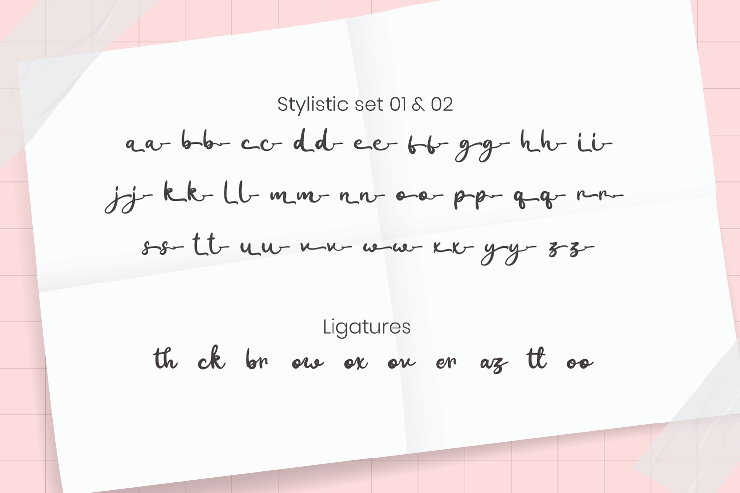 Stylistic set 01 & 02
aa bb cc dd ee ff gg hh ii
jj kk ll mm nn oo pp qq rr
ss tt uu vv ww xx yy zz
Ligatures
th ck br ow ox ov er az tt oo